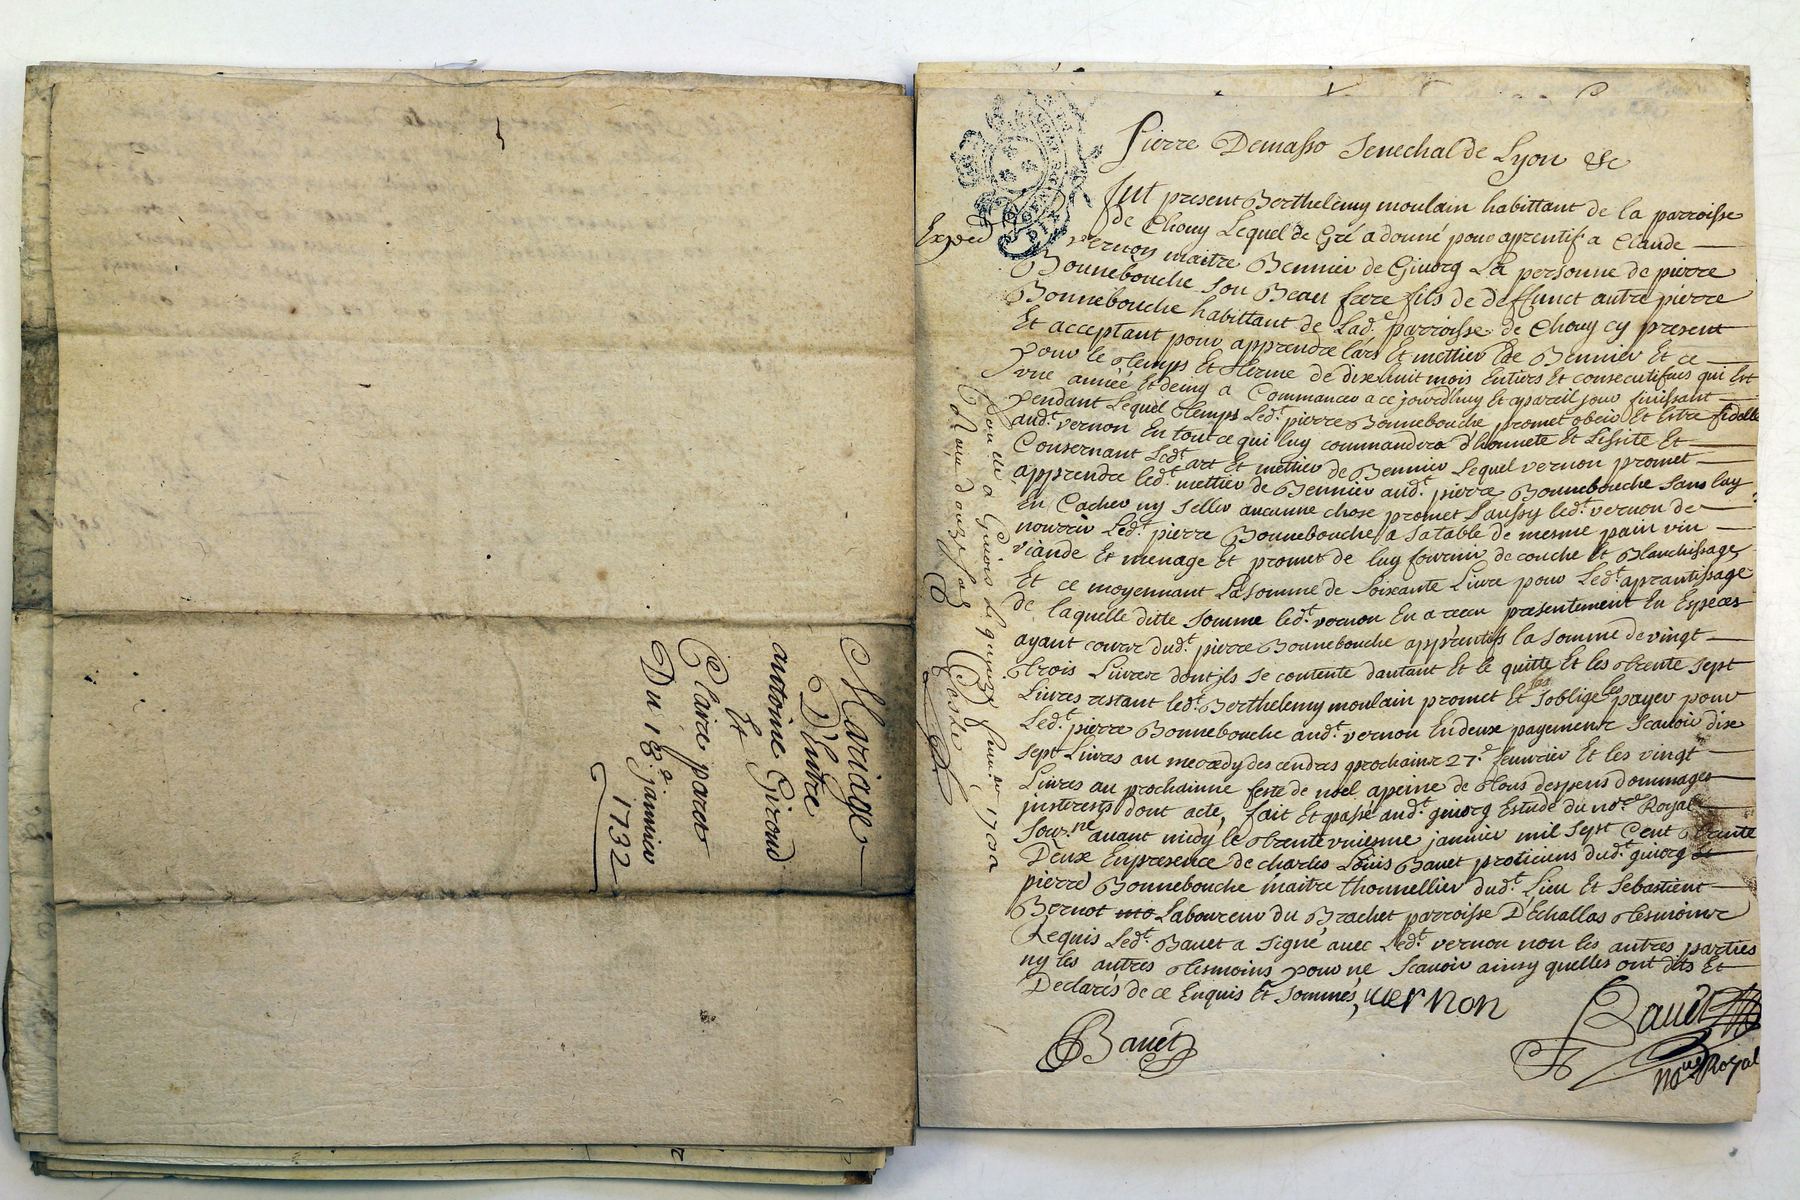 Mariage
D'Entre
antoine Giroud
Et
Claire paret
Du 18e. janvier
1732
Pierre Demasso Senechal de Lyon &c
Exped
fut present Berthelemy moulain habittant de la parroisse
de Chouy Lequel de Gré a donné pour aprentif a Claude
vernon maitre Bennier de Givorg La personne de pierre
Bonnebouche son Beau frere fils de deffunct autre pierre
Bonnebouche habittant de Lade. parroisse de Chouy cy present
Et acceptant pour apprendre lars Et mettier de Bennier Et ce
pour le temps Et terme de dixhuit mois Entiers Et consecutifues qui Est
une année Et demy a Commancer a ce jourdhuy Et apareil jour finissant
pendant Lequel temps Ledt. pierre Bonnebouche promet obeir Et Estre fidelle
audt. vernon En tout ce qui luy commandera d'honnete Et Lissite Et
Consernant Ledt. art Et mettier de Bennier Lequel vernon promet
apprendre ledt. mettier de Bennier audt. pierre Bonnebouche sans luy
En Cacher ny Seller aucunne chose promet Laussy ledt. vernon de
nourrir Ledt. pierre Bonnebouche a Satable de mesme pain vin
viande Et menage Et promet de luy fournir de couche Et Blanchissage
Et ce moyennant La somme de Soixante Livre pour Ledt. aprantissage
de laquelle ditte somme ledt. vernon En a receu presentement En Especes
ayant cource dudt. pierre Bonnebouche apprentifs la somme de vingt
trois Livrer dont jls se contente dautant Et le quitte Et les trente sept
Livres restant ledt. Berthelemy moulain promet Et soblige les payer pour
Ledt. pierre Bonnebouche audt. vernon En deux payements Scavoir dixe
sept Livres au mecredy des cendres prochaine 27e. feuvrier Et les vingt
Livres au prochainne feste de noel apeine de tous despens dommages
jnsterests dont acte, fait Et passé audt. givorg Estude du nore. Royal
Sourne. avant midy le trente vniesme janvier mil sept Cent trante
Deux En presence de charles Louis Bauet praticiens dudt. givorg
pierre Bonnebouche maitre thonnellier dudt. Lieu Et Sebastient
Bernot Laboureur du Brachet parroisse D'Echallas tesmoinc
Requis Ledt. Bauet a signé avec Ledt. vernon non les autres parties
ny les autres tesmoins pour ne Scavoir ainsy quelles ont dits Et
Declarés de ce Enquis Et Sommés, vernon
Bauet
Bauet
nore Royal
Con.lé a Givors le quinze feuv.er 1732
Reçu douze sols Coste